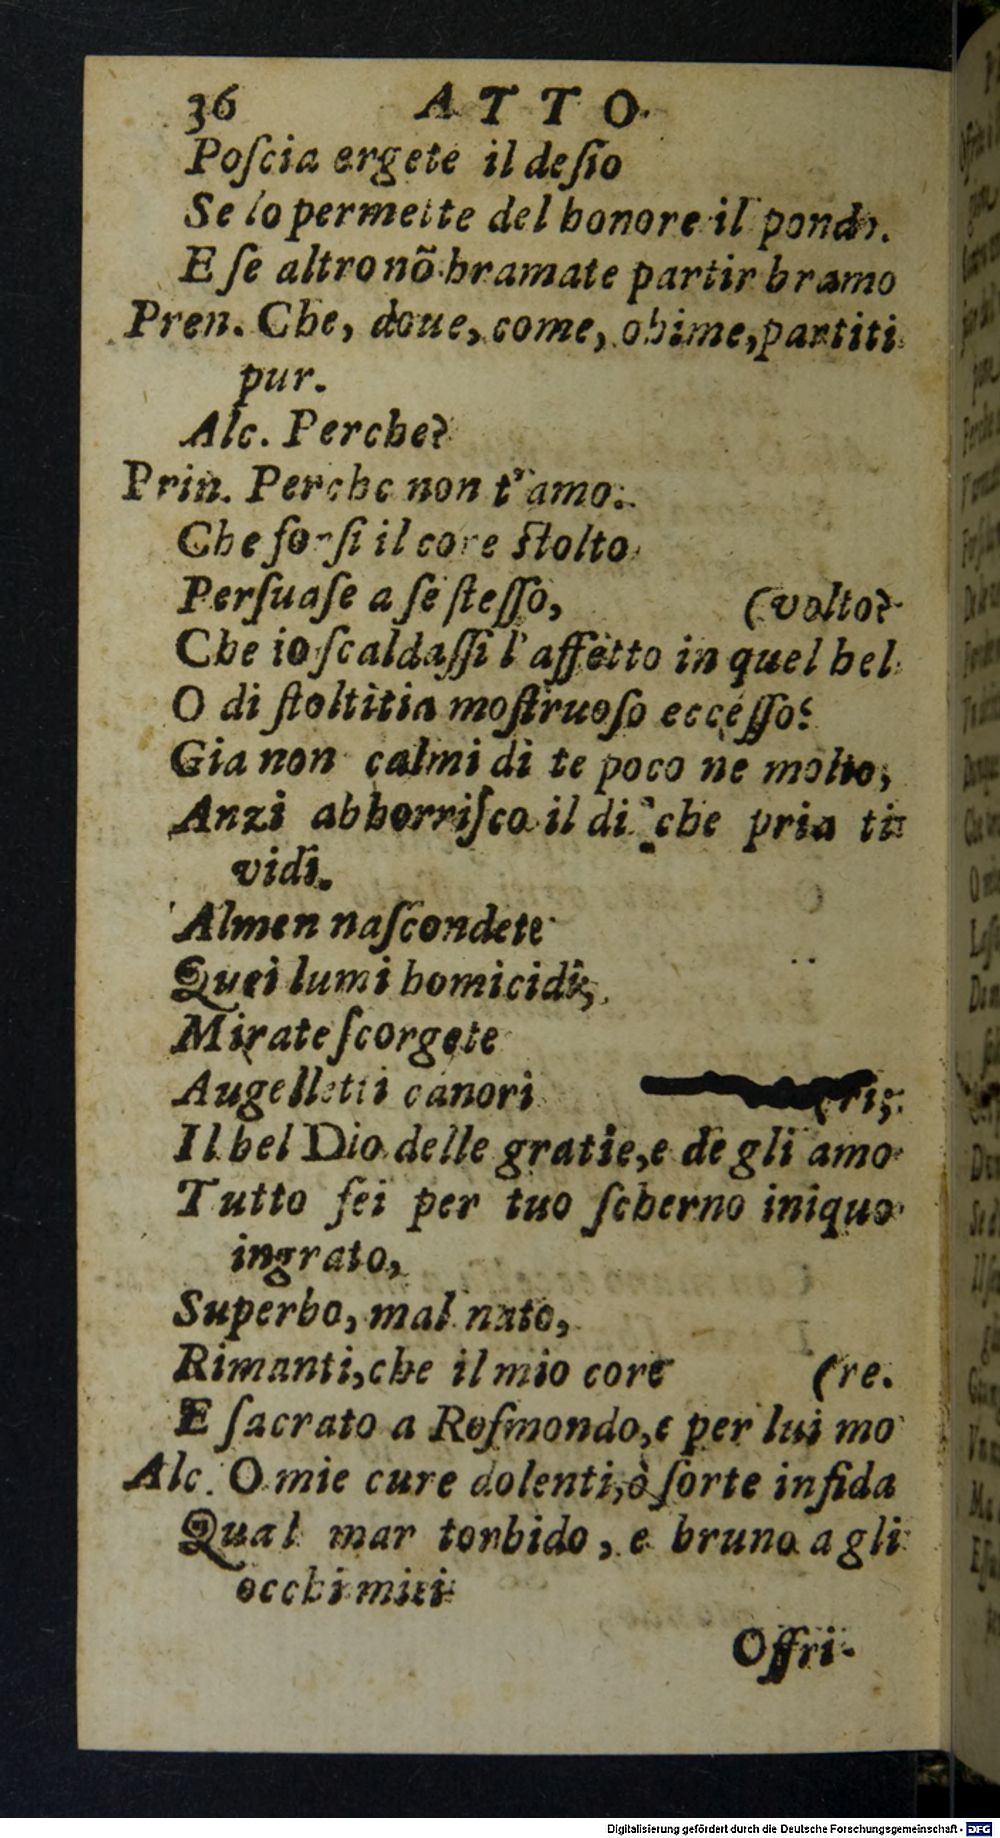 36 ATTO.
Poſcia ergete il deſio
Se lo permette del honore il pondo.
E ſe altro nõ bramate partir bramo
Pren. Che, doue, come, ohime, partiti
pur.
Alc. Perche?
Prin. Perche non t'amo.
Che forſi il core ſtolto
Perſuaſe a ſe ſteſſo,
(volto?
Che io ſcaldaſſi l'affetto in quel bel
O di ſtoltitia moſtruoſo ecceſſo!
Gia non calmi di te poco ne molto,
Anzi abhorriſco il di che pria ti
vidi.
Almen naſcondete
Quei lumi homicidi,
Mirate ſcorgete
Augelletti canori
(ri,
Il bel Dio delle gratie, e de gli amo
Tutto ſei per tuo ſcherno iniquo
ingrato,
Superbo, mal nato,
Rimanti, che il mio core
(re.
E ſacrato a Roſmondo, e per lui mo
Alc. O mie cure dolenti, ò ſorte infida
Qual mar torbido, e bruno a gli
occhi miei
Offri-
Digitalisierung gefördert durch die Deutsche Forschungsgemeinschaft - DFG